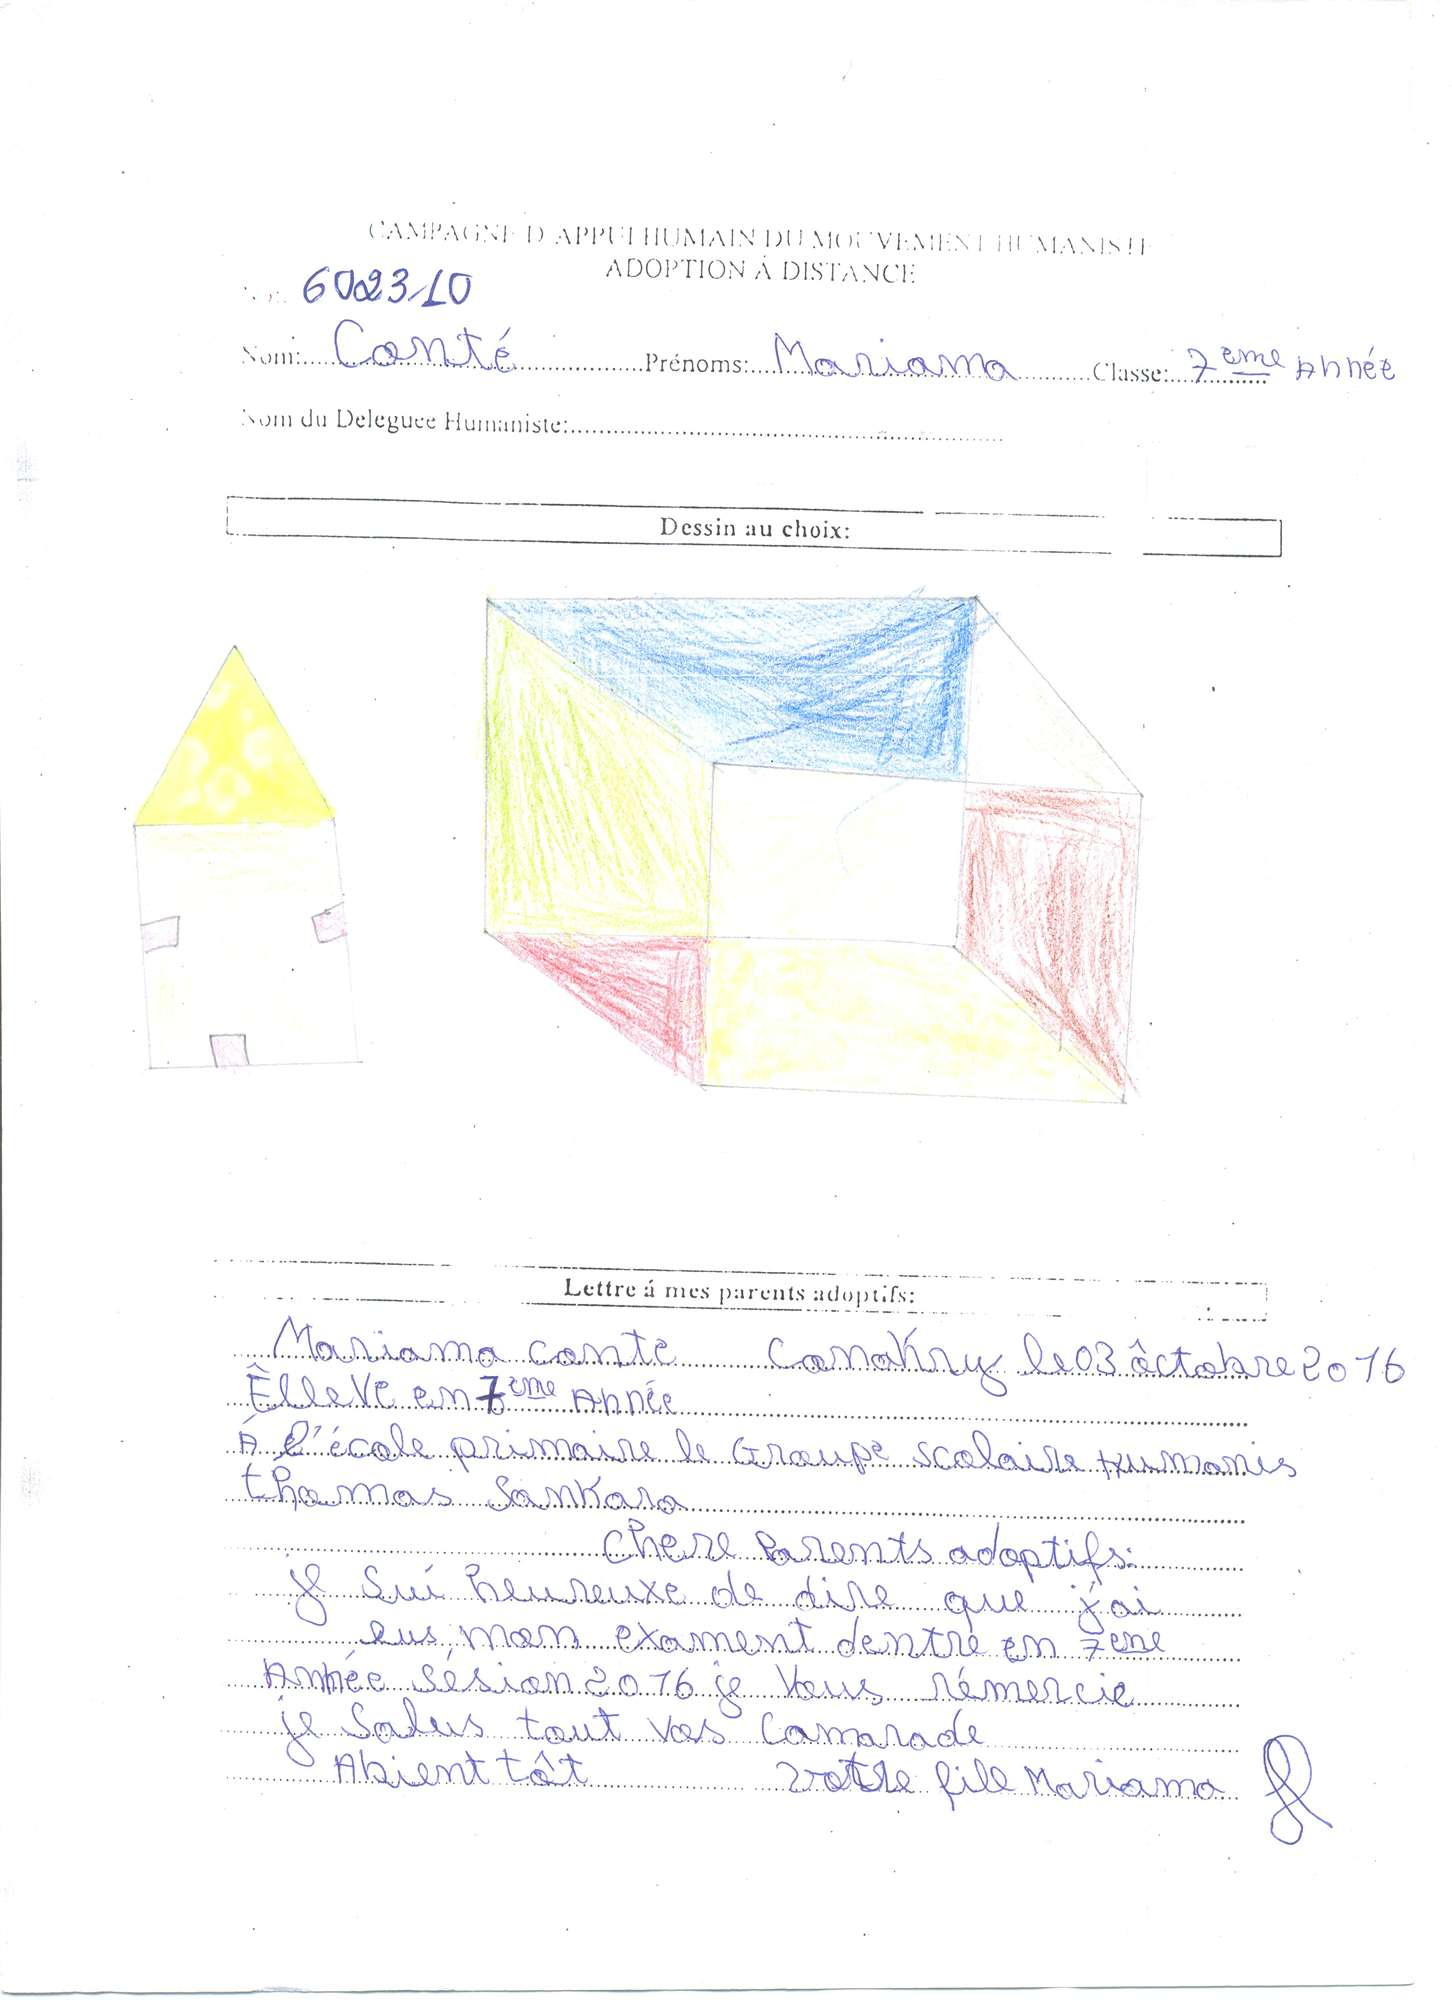 CAMPAGNE D'APPUI HUMAIN DU MOUVEMENT HUMANISTE
ADOPTION Á DISTANCE
No: 602310
Nom: Conté Prénoms: Mariama Classe: 7eme Année
Nom du Deleguee Humaniste:
Dessin au choix:
Lettre á mes parents adoptifs:
Mariama conte Conakry le 03 ôctobre 2016
Êlleve en 7eme Année
Á l'école primaire le Groupe scolaire Humanis
thomas Sankara
chere Parents adoptifs:
je Sui heureuxe de dire que j'ai
eus mon exament dentré en 7eme
Année Sésion 2016 je Vous rémercie
je Salus tout vos Camarade
Abient tôt votre fille Mariama